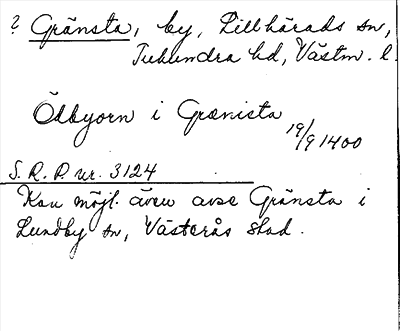 ? Gränsta, by, Lillhärads sn,
Tuhundra hd, Västm. l.
Ödbyorn i Grænista
19/9 1400
S. R. P. nr. 3124
Kan möjl. även avse Gränsta i
Lundby sn, Västerås stad.